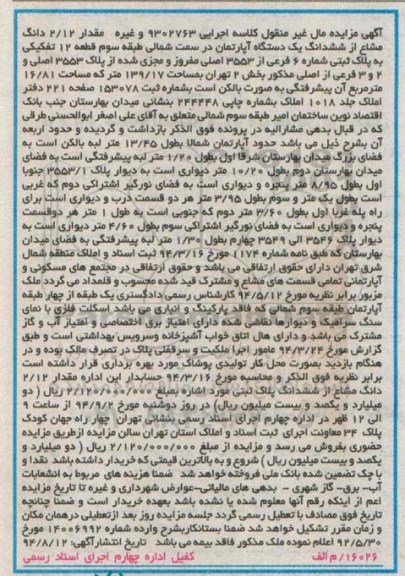 آگهی مزایده مال غیر منقول کلاسه اجرایی ۹۳۰۲۷۶۳ و غیره مقدار ۲/۱۲ دانگ
مشاع از ششدانگ یک دستگاه آپارتمان در سمت شمالی طبقه سوم قطعه ۱۲ تفکیکی
به پلاک ثبتی شماره ۶ فرعی از ۳۵۵۳ اصلی مفروز و مجزی شده از پلاک ۳۵۵۳ اصلی و
۲ و ۳ فرعی از اصلی مذکور بخش ۲ تهران بمساحت ۱۳۹/۱۷ متر که مساحت ۱۶/۸۱
مترمربع آن پیشرفتگی به صورت بالکن است بشماره ثبت ۱۵۳۰۷۸ صفحه ۲۲۱ دفتر
املاک جلد ۱۰۱۸ املاک بشماره چاپی ۲۴۴۴۴۸ بنشانی میدان بهارستان جنب بانک
اقتصاد نوین ساختمان امیر طبقه سوم شمالی متعلق به آقای علی اصغر ابوالحسنی طرقی
که در قبال بدهی مشارالیه در پرونده فوق الذکر بازداشت و گردیده و حدود اربعه
آن بشرح ذیل می باشد حدود آپارتمان شمالا بطول ۱۳/۴۵ متر لبه بالکن است به
فضای بزرگ میدان بهارستان شرقا اول بطول ۱/۲۰ متر لبه پیشرفتگی است به فضای
میدان بهارستان دوم بطول ۱۰/۲۰ متر دیواری است به دیوار پلاک ۳۵۵۳/۱ جنوبا
اول بطول ۸/۹۵ متر پنجره و دیواری است به فضای نورگیر اشتراکی دوم که غربی
است بطول یک متر و سوم بطول ۳/۹۵ متر هر دو قسمت درب و دیواری است برای
راه پله غربا اول بطول ۳/۶۰ متر دوم که جنوبی است به طول ۱ متر هر دوقسمت
پنجره و دیواری است به فضای نورگیر اشتراکی سوم بطول ۴/۶۰ متر دیواری است به
دیوار پلاک ۳۵۴۶ الی ۳۵۴۹ چهارم بطول ۱/۳۰ متر لبه پیشرفتگی به فضای میدان
بهارستان که طبق نامه شماره ۱۱۷۴ مورخ ۹۴/۳/۱۶ ثبت اسناد و املاک منطقه شمال
شرق تهران دارای حقوق ارتفاقی می باشد و حقوق ارتفاقی در مجتمع های مسکونی و
آپارتمانی تمامی قسمت های مشاع و مشترک قید شده محسوب و قلمداد می گردد ملک
مزبور برابر نظریه مورخ ۹۴/۵/۱۲ کارشناس رسمی دادگستری یک طبقه از چهار طبقه
آپارتمان طبقه سوم شمالی که فاقد پارکینگ و انباری می باشد اسکلت فلزی با نمای
سنگ سرامیک و دیوارها نقاشی شده دارای امتیاز برق اختصاصی و امتیاز آب و گاز
مشترک می باشد و دارای هال اتاق خواب آشپزخانه وسرویس بهداشتی است و طبق
گزارش مورخ ۹۴/۳/۲۴ مامور اجرا ملکیت و سرقفلی پلاک در تصرف مالک بوده و در
هنگام بازدید بصورت محل کار تولیدی پوشاک مورد بهره برداری قرار داشته است
برابر نظریه فوق الذکر و محاسبه مورخ ۹۴/۳/۱۶ حسابدار این اداره مقدار ۲/۱۲
دانگ مشاع از ششدانگ پلاک ثبتی مورد اشاره بمبلغ ۲/۱۲۰/۰۰۰/۰۰۰ ریال ( دو
میلیارد و یکصد و بیست میلیون ریال) در روز دوشنبه مورخ ۹۴/۹/۲ از ساعت ۹
الی ۱۲ ظهر در اداره چهارم اجرای اسناد رسمی بنشانی تهران چهار راه جهان کودک
پلاک ۳۴ معاونت اجرای ثبت اسناد و املاک استان تهران سالن مزایده ازطریق مزایده
حضوری بفروش می رسد و مزایده از مبلغ ۲/۱۲۰/۰۰۰/۰۰۰ ریال ( دو میلیارد و
یکصد و بیست میلیون ریال ) شروع و به بالاترین قیمتی که خریدار داشته باشد نقدا و
با چک تضمین شده بانک ملی فروخته خواهد شد ضمنا هزینه های مربوط به انشعابات
آب- برق- گاز شهری - بدهی های مالیاتی-عوارض شهرداری و غیره تا تاریخ مزایده
اعم از اینکه رقم آنها معلوم شده یا نشده باشد بعهده خریدار است و ضمنا چنانچه
تاریخ فوق مصادف با تعطیل رسمی گردد جلسه مزایده روز بعد ازتعطیلی درهمان مکان
و زمان مقرر تشکیل خواهد شد ضمنا بستانکاربشرح وارده شماره ۱۴۰۰۶۹۹۲ مورخ
۹۲/۵/۳۰ اعلام نموده ملک مذکور فاقد بیمه می باشد تاریخ انتشارآگهی: ۹۴/۸/۱۲
۱۶۰۲۶/م الف کفیل اداره چهارم اجرای اسناد رسمی